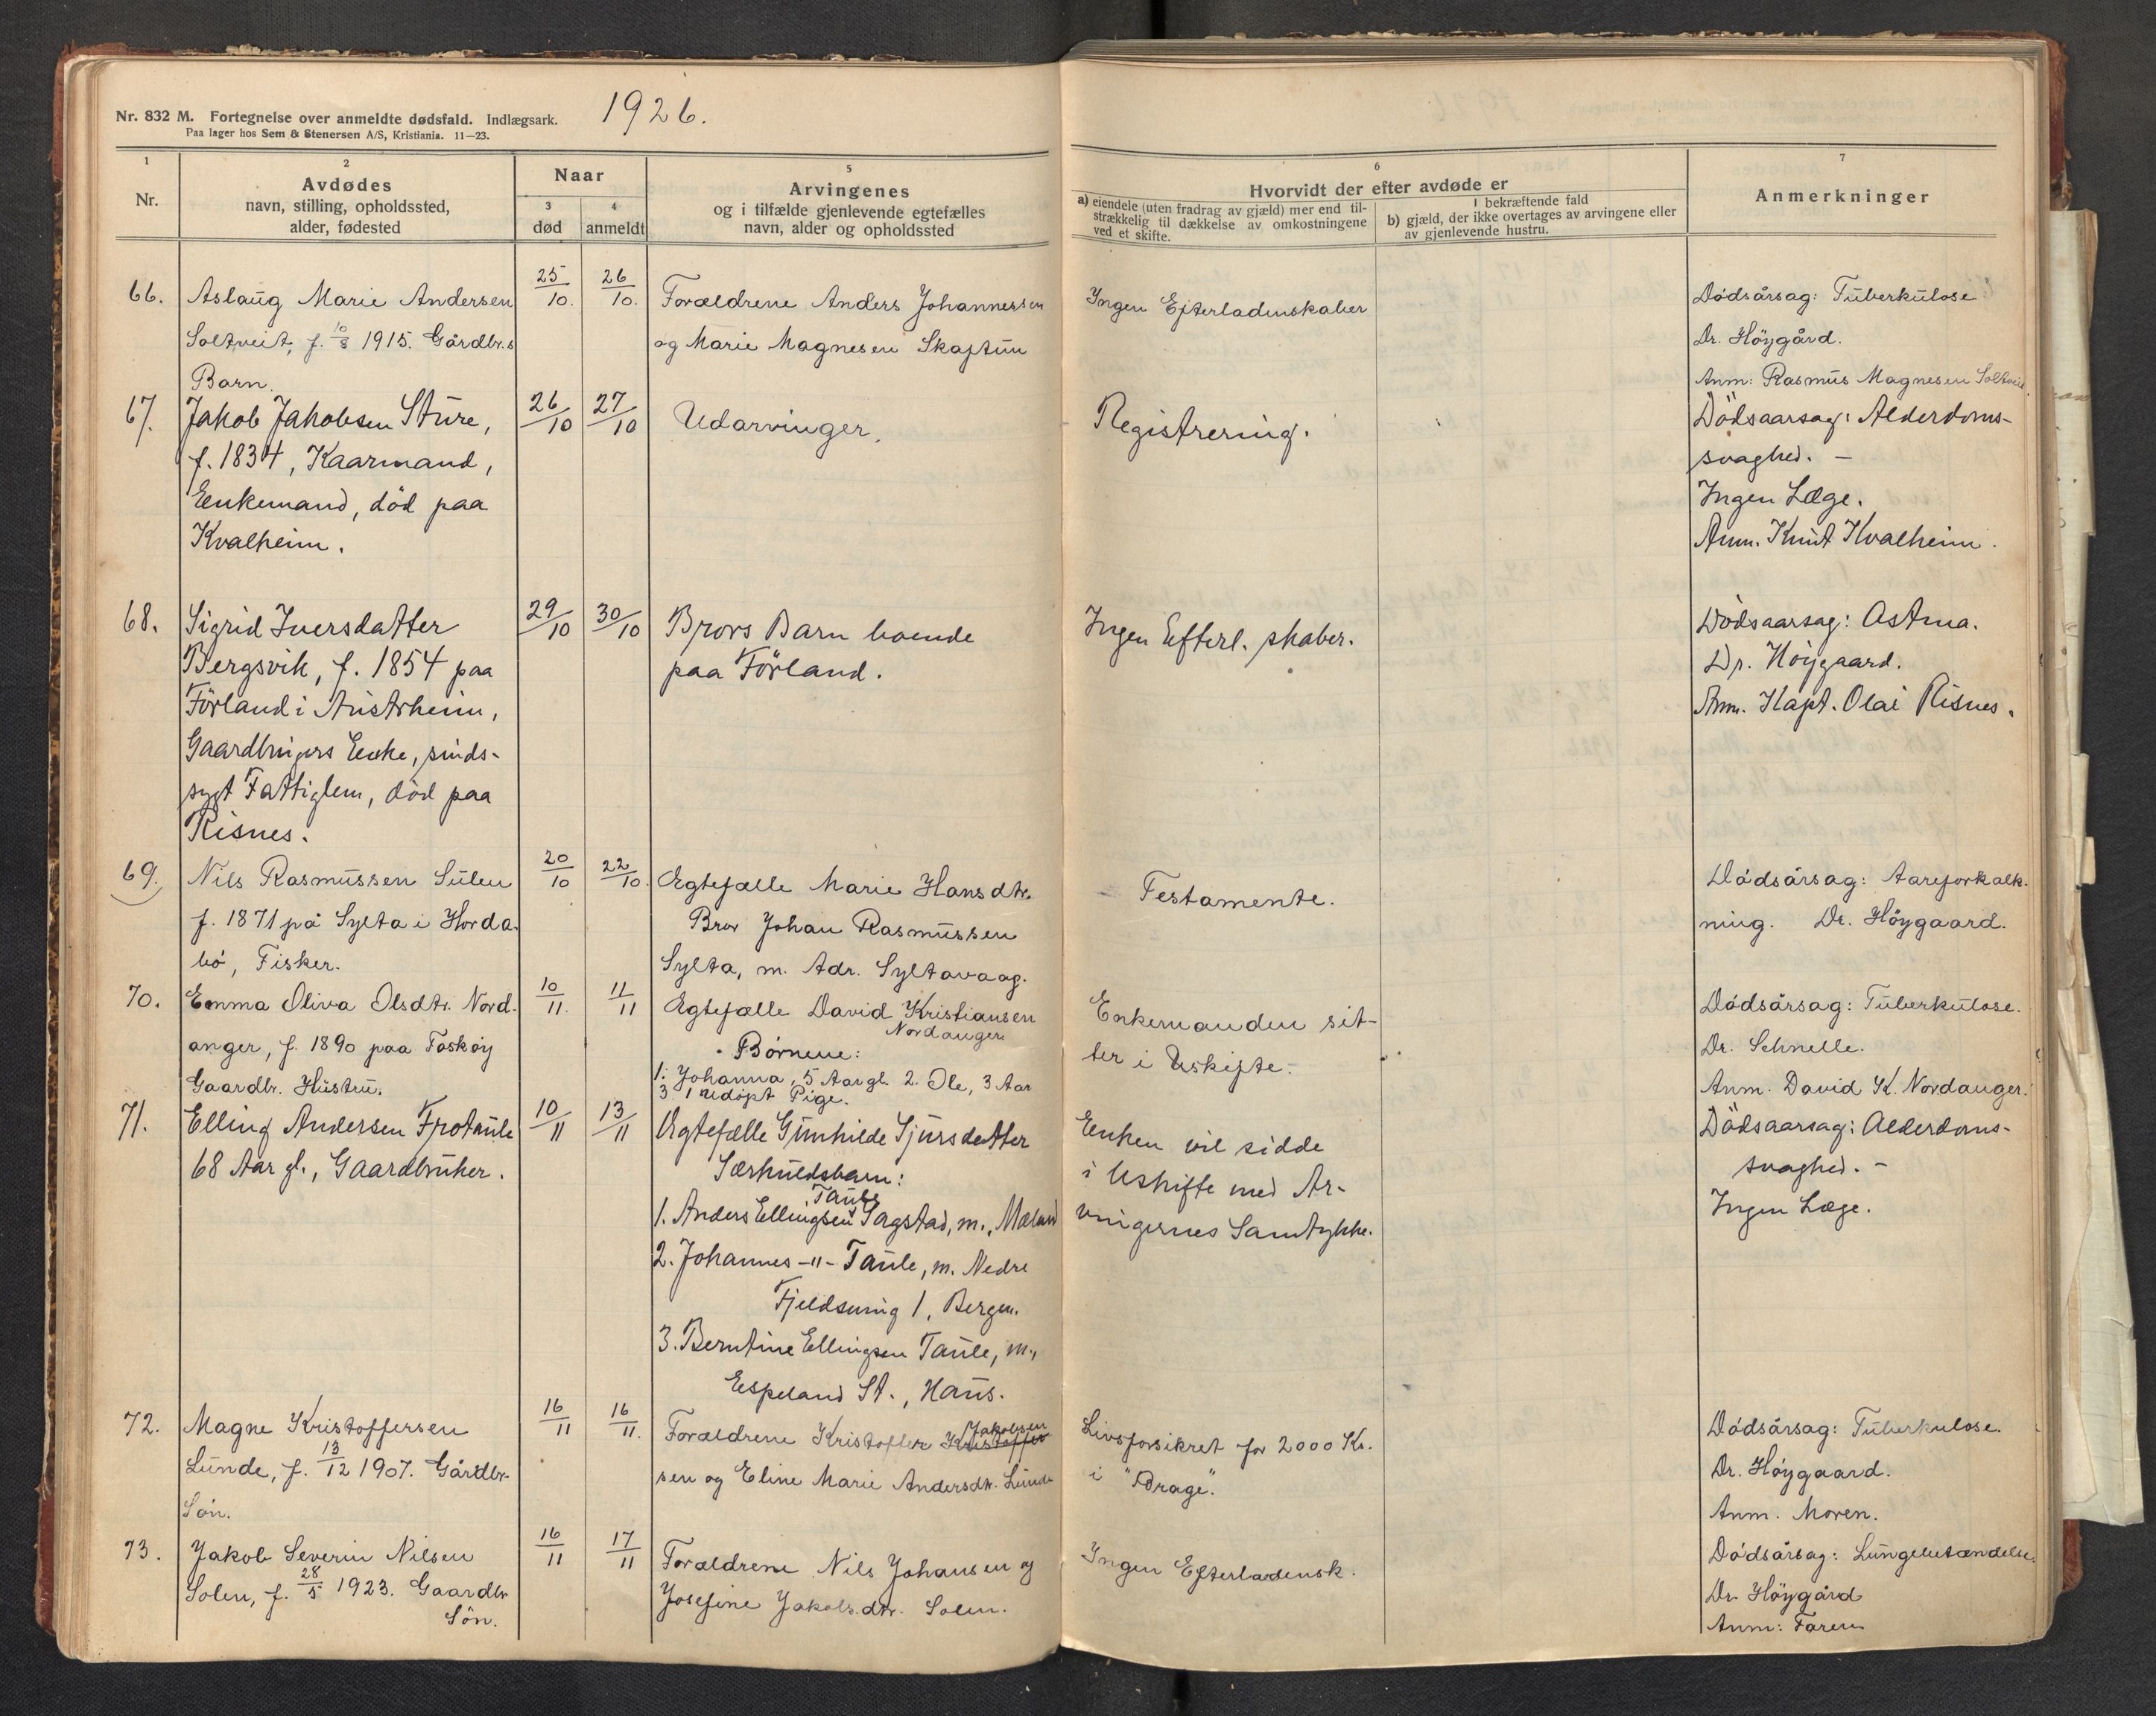 Nr. 832 M. Fortegnelse over anmeldte dødsfald. Indlægsark.
Paa lager hos Sem & Stenersen A/S, Kristiania. 11—23.
1926.
1
Nr.
2
Avdødes
navn, stilling, opholdssted,
alder, fødested
Naar
3
død
4
anmeldt
5
Arvingenes
og i tilfælde gjenlevende egtefælles
navn, alder og opholdssted
6
Hvorvidt der efter avdøde er
a) eiendele (uten fradrag av gjæld) mer end til-
strækkelig til dækkelse av omkostningene
ved et skifte.
I bekræftende fald
b) gjæld, der ikke overtages av arvingene eller
av gjenlevende hustru.
7
Anmerkninger
66.
Aslaug Marie Andersen
Soltveit, f. 10/8 1915. Gårdbr.s
Barn.
25/10.
26/10.
Forældrene Anders Johannessen
og Marie Magnesen Skaftun
Ingen Efterladenskaber
Dødsårsag: Tuberkulose
Dr. Höygård.
Anm: Rasmus Magnesen Soltveit
67.
Jakob Jakobsen Sture,
f. 1834, Kaarmand,
Enkemand, död paa
Kvalheim.
26/10
27/10
Udarvinger.
Registrering.
Dödsaarsag: Alderdoms-
svaghed. —
Ingen Læge.
Anm. Knut Kvalheim.
68.
Sigrid Iversdatter
Bergsvik, f. 1854 paa
Förland i Austrheim,
Gaardbrugers Enke, sinds-
sygt Fattiglem, död paa
Risnes.
29/10
30/10
Brors Barn boende
paa Förland.
Ingen Efterl. skaber.
Dödsaarsag: Astma.
Dr. Höygaard.
Anm. Kapt. Olai Risnes.
69.
Nils Rasmussen Sulen
f. 1871 på Sylta i Horda-
bö, Fisker.
20/10
22/10.
Egtefælle Marie Hansdtr.
Bror Johan Rasmussen
Sylta, m. Adr. Syltavaag.
Testamente.
Dødsårsag: Aareforkalk-
ning. Dr. Höygaard.
70.
Emma Oliva Olsdtr. Nord-
anger, f. 1890 paa Toskøy
Gaardbr. Hustru.
10/11.
11/11
Egtefælle David Kristiansen
Nordanger
Börnene:
1. Johanna, 5 Aar gl. 2. Ole, 3 Aar
3. 1 adopt Pige.
Enkemanden sit-
ter i Uskifte.
Dødsårsag: Tuberkulose.
Dr. Schnelle.
Anm. David K. Nordanger.
71.
Elling Andersen Fjotaule
68 Aar gl., Gaardbruker.
10/11
13/11
Egtefælle Gunhilde Sjursdatter
Særkuldsbarn:
Taule
1. Anders Ellingsen Sagstad, m., Mæland
2. Johannes -"- Taule, m. Nedre
Fjeldsmug 1, Bergen.
3. Berntine Ellingsen Taule, m.,
Espeland St., Haus.
Enken vil sidde
i Uskifte med Ar-
vingernes Samtykke.
Dödsaarsag: Alderdoms-
svaghed. —
Ingen Læge.
72.
Magne Kristoffersen
Lunde, f. 13/12 1907. Gårdbr.
Sön.
16/11
16/11.
Jakobsen
Forældrene Kristoffer Kristoffer
sen og Eline Marie Andersdtr. Lunde
Livsforsikret for 2000 Kr.
i "Brage".
Dødsårsag: Tuberkulose.
Dr. Höygaard.
Anm. Moren.
73.
Jakob Severin Nilsen
Solen, f. 28/5 1923. Gaardbr
Sön.
16/11
17/11
Forældrene Nils Johansen og
Josefine Jakobs.dtr. Solen.
Ingen Efterladensk.
Dødsårsag: Lungebetændelse.
Dr. Höygård
Anm: Faren